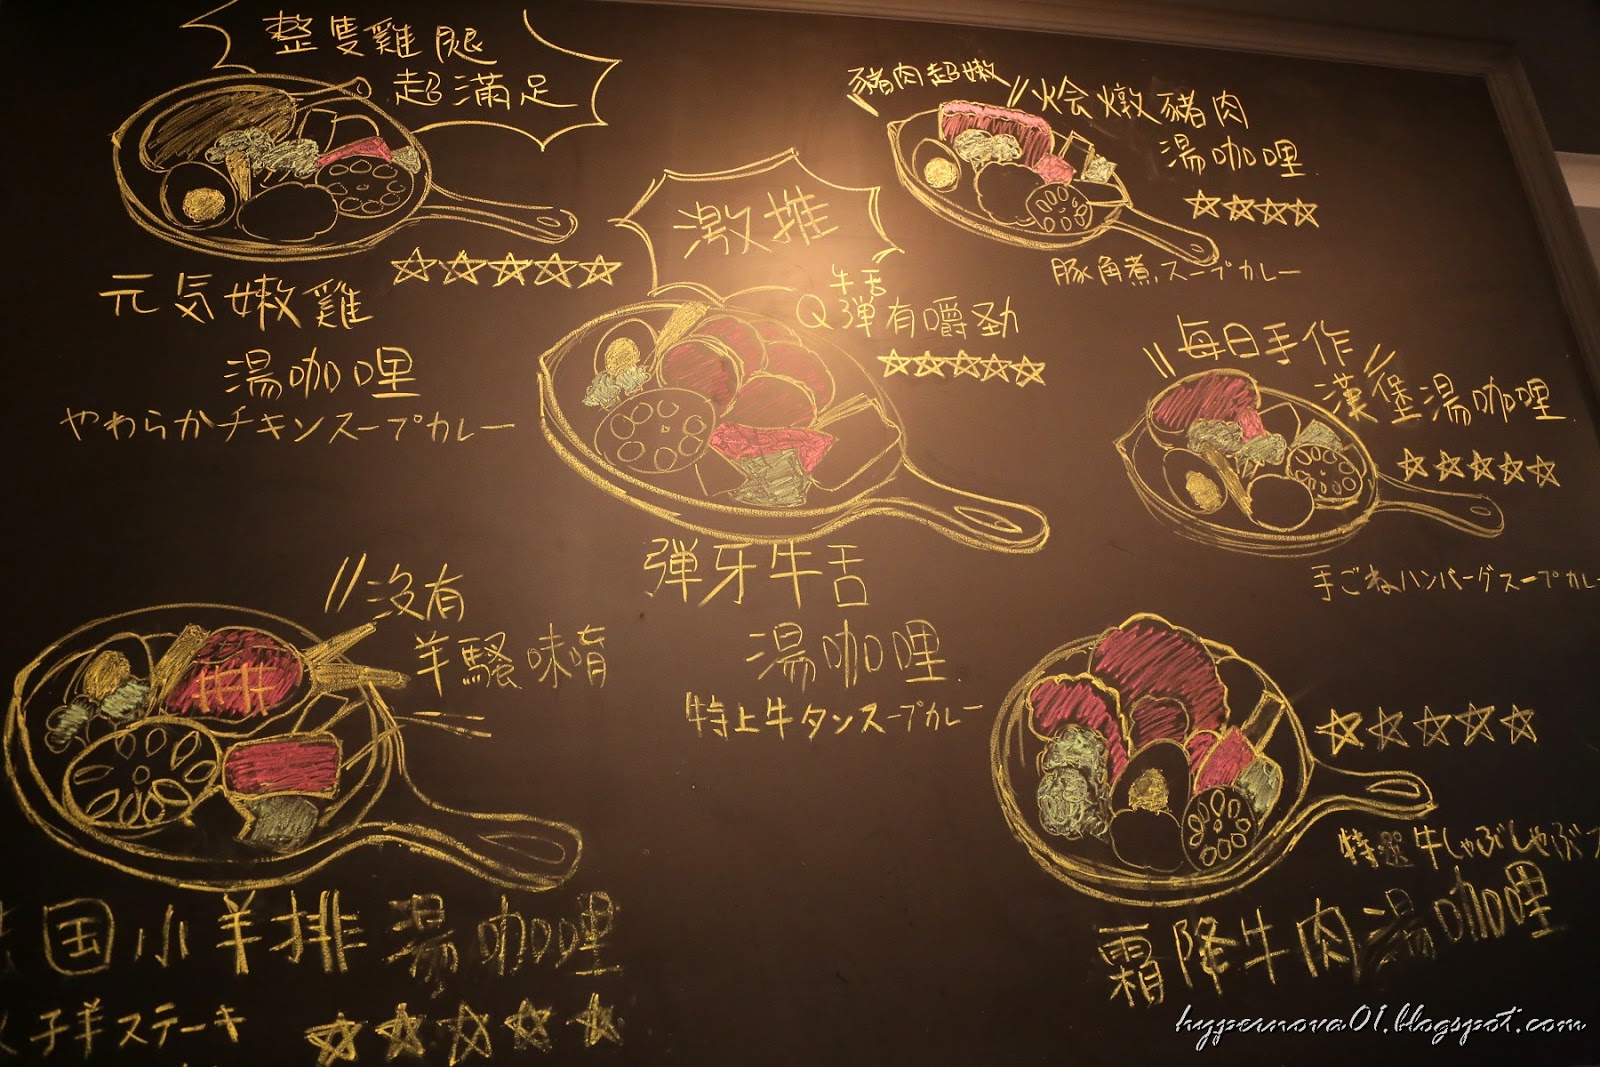 整隻雞腿
超滿足
元気嫩雞
湯咖哩
やわらかチキンスープカレー
激推
牛舌
Q弾有嚼勁
弾牙牛舌
湯咖哩
特上牛タンスープカレー
豬肉超嫩
燴燉豬肉
湯咖哩
豚角煮スープカレー
每日手作
漢堡湯咖哩
手ごねハンバーグスープカレ
沒有
羊騷味唷
国小羊排湯咖哩
子羊ステーキ
特選牛しゃぶしゃぶス
霜降牛肉湯咖哩
hypernova01.blogspot.com